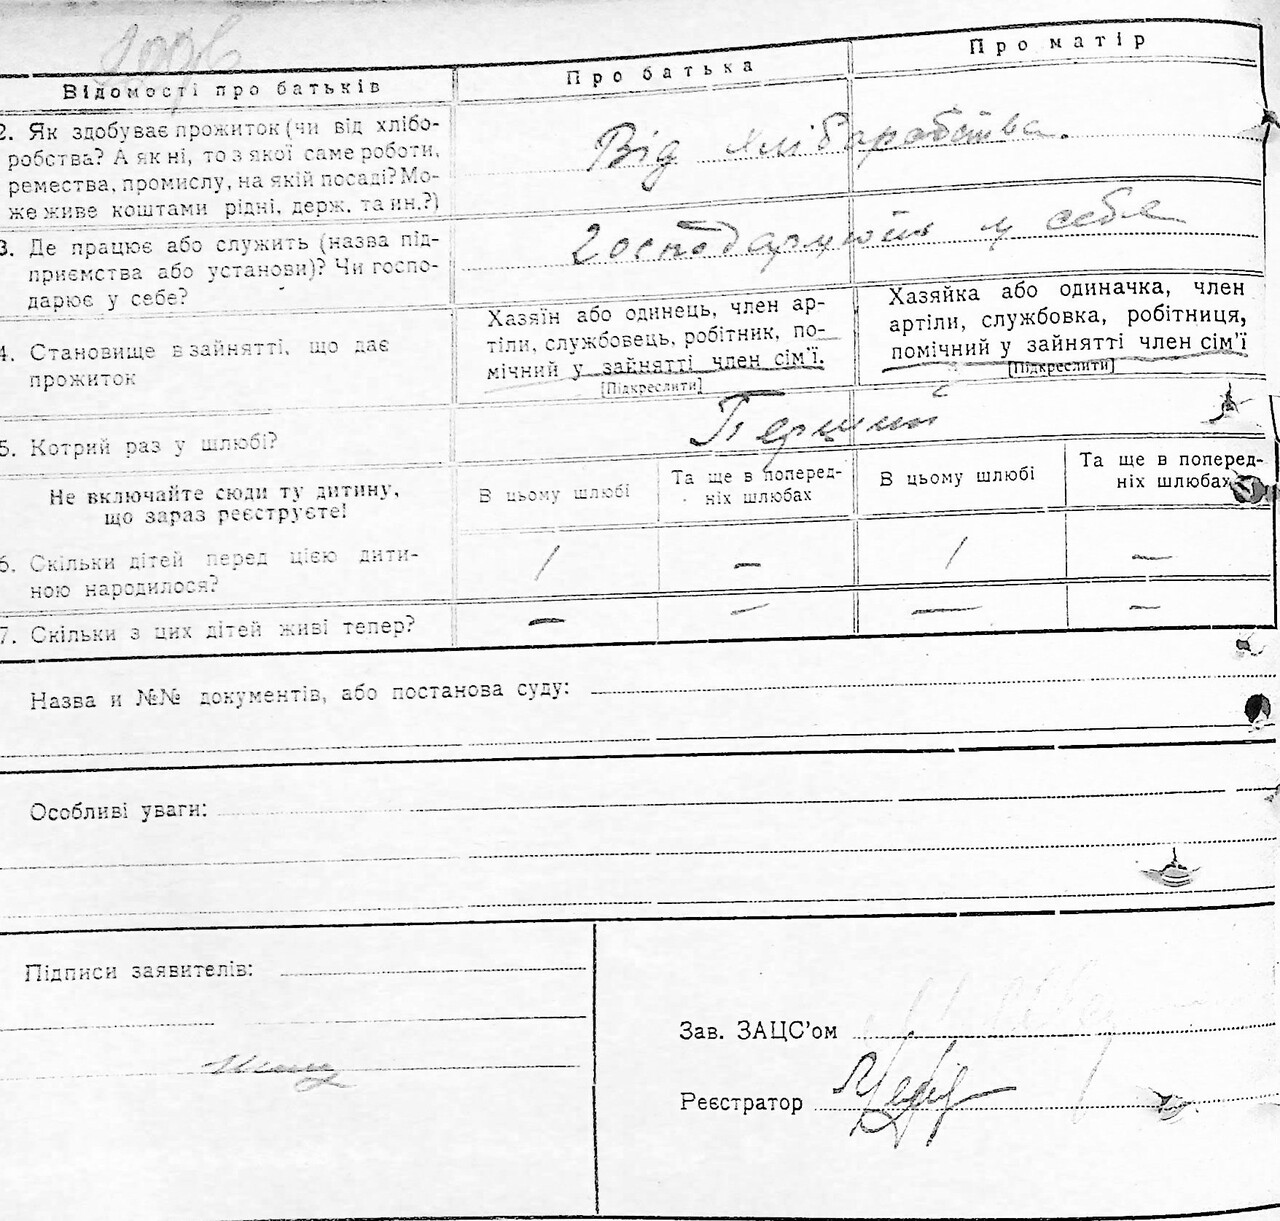 Відомості про батьків
Про батька
Про матір
2. Як здобуває прожиток (чи від хлібо-
робства? А як ні, то з якої саме роботи,
ремества, промислу, на якій посаді? Мо-
же живе коштами рідні, держ. та ин.?)
Від хліборобства.
3. Де працює або служить (назва під-
приємства або установи)? Чи госпо-
дарює у себе?
Господарують у себе
4. Становище в зайнятті, що дає
прожиток
Хазяїн або одинець, член ар-
тіли, службовець, робітник, по-
мічний у зайнятті член сім'ї.
[Підкреслити]
Хазяйка або одиначка, член
артіли, службовка, робітниця,
помічний у зайнятті член сім'ї
[Підкреслити]
5. Котрий раз у шлюбі?
Перший
Не включайте сюди ту дитину,
що зараз реєструєте!
В цьому шлюбі
Та ще в поперед-
ніх шлюбах
В цьому шлюбі
Та ще в поперед-
ніх шлюбах
6. Скільки дітей перед цією дити-
ною народилося?
1 — 1 —
7. Скільки з цих дітей живі тепер?
— — — —
Назва и №№ документів, або постанова суду:
Особливі уваги:
Підписи заявителів:
Зав. ЗАЦС'ом
Реєстратор